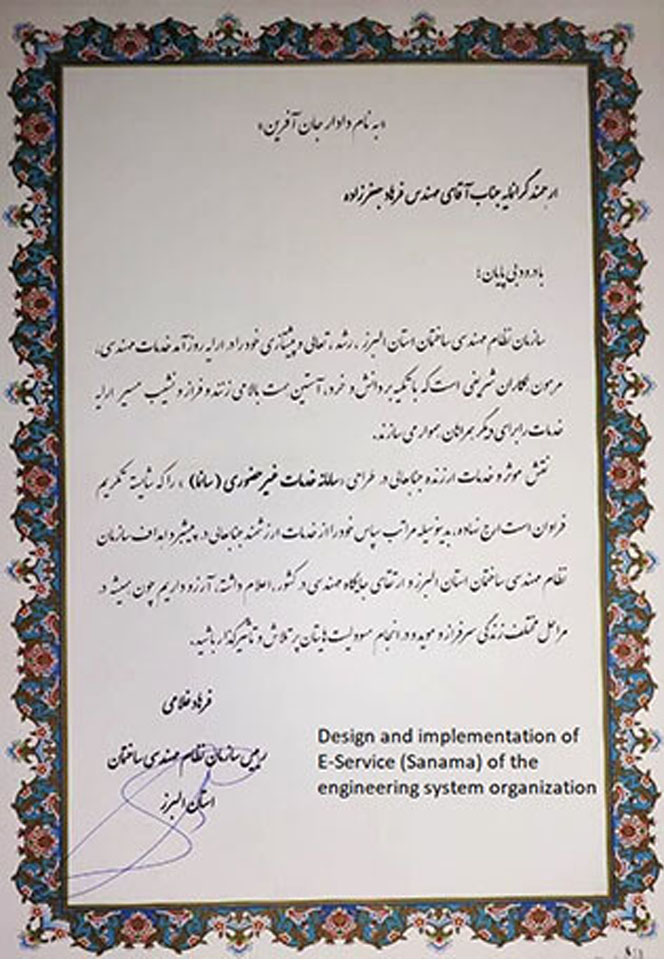 «به نام دادار جان آفرین»
ارجمند گرانمایه جناب آقای مهندس فرهاد جعفرزاده
با درود بی پایان؛
سازمان نظام مهندسی ساختمان استان البرز ، رشد ، تعالی و پیشتازی خود را در ارایه روزآمد خدمات مهندسی،
مرهون همکاران شریفی است که با تکیه بر دانش و خرد، آستین همت بالا می زنند و فراز و نشیب مسیر ارایه
خدمات را برای دیگر همراهان هموار می سازند.
نقش موثر و خدمات ارزنده جنابعالی در طراحی «سامانه خدمات غیر حضوری (سانما)» را که شایسته تکریم
فراوان است ارج نهاده، بدینوسیله مراتب سپاس خود را از خدمات ارزشمند جنابعالی در پیشبرد اهداف سازمان
نظام مهندسی ساختمان استان البرز و ارتقای جایگاه مهندسی در کشور ، اعلام داشته، آرزو داریم چون همیشه در
مراحل مختلف زندگی سرفراز و موید و در انجام مسوولیت هایتان پر تلاش و تاثیرگذار باشید.
فرهاد غلامی
رییس سازمان نظام مهندسی ساختمان
استان البرز
Design and implementation of
E-Service (Sanama) of the
engineering system organization